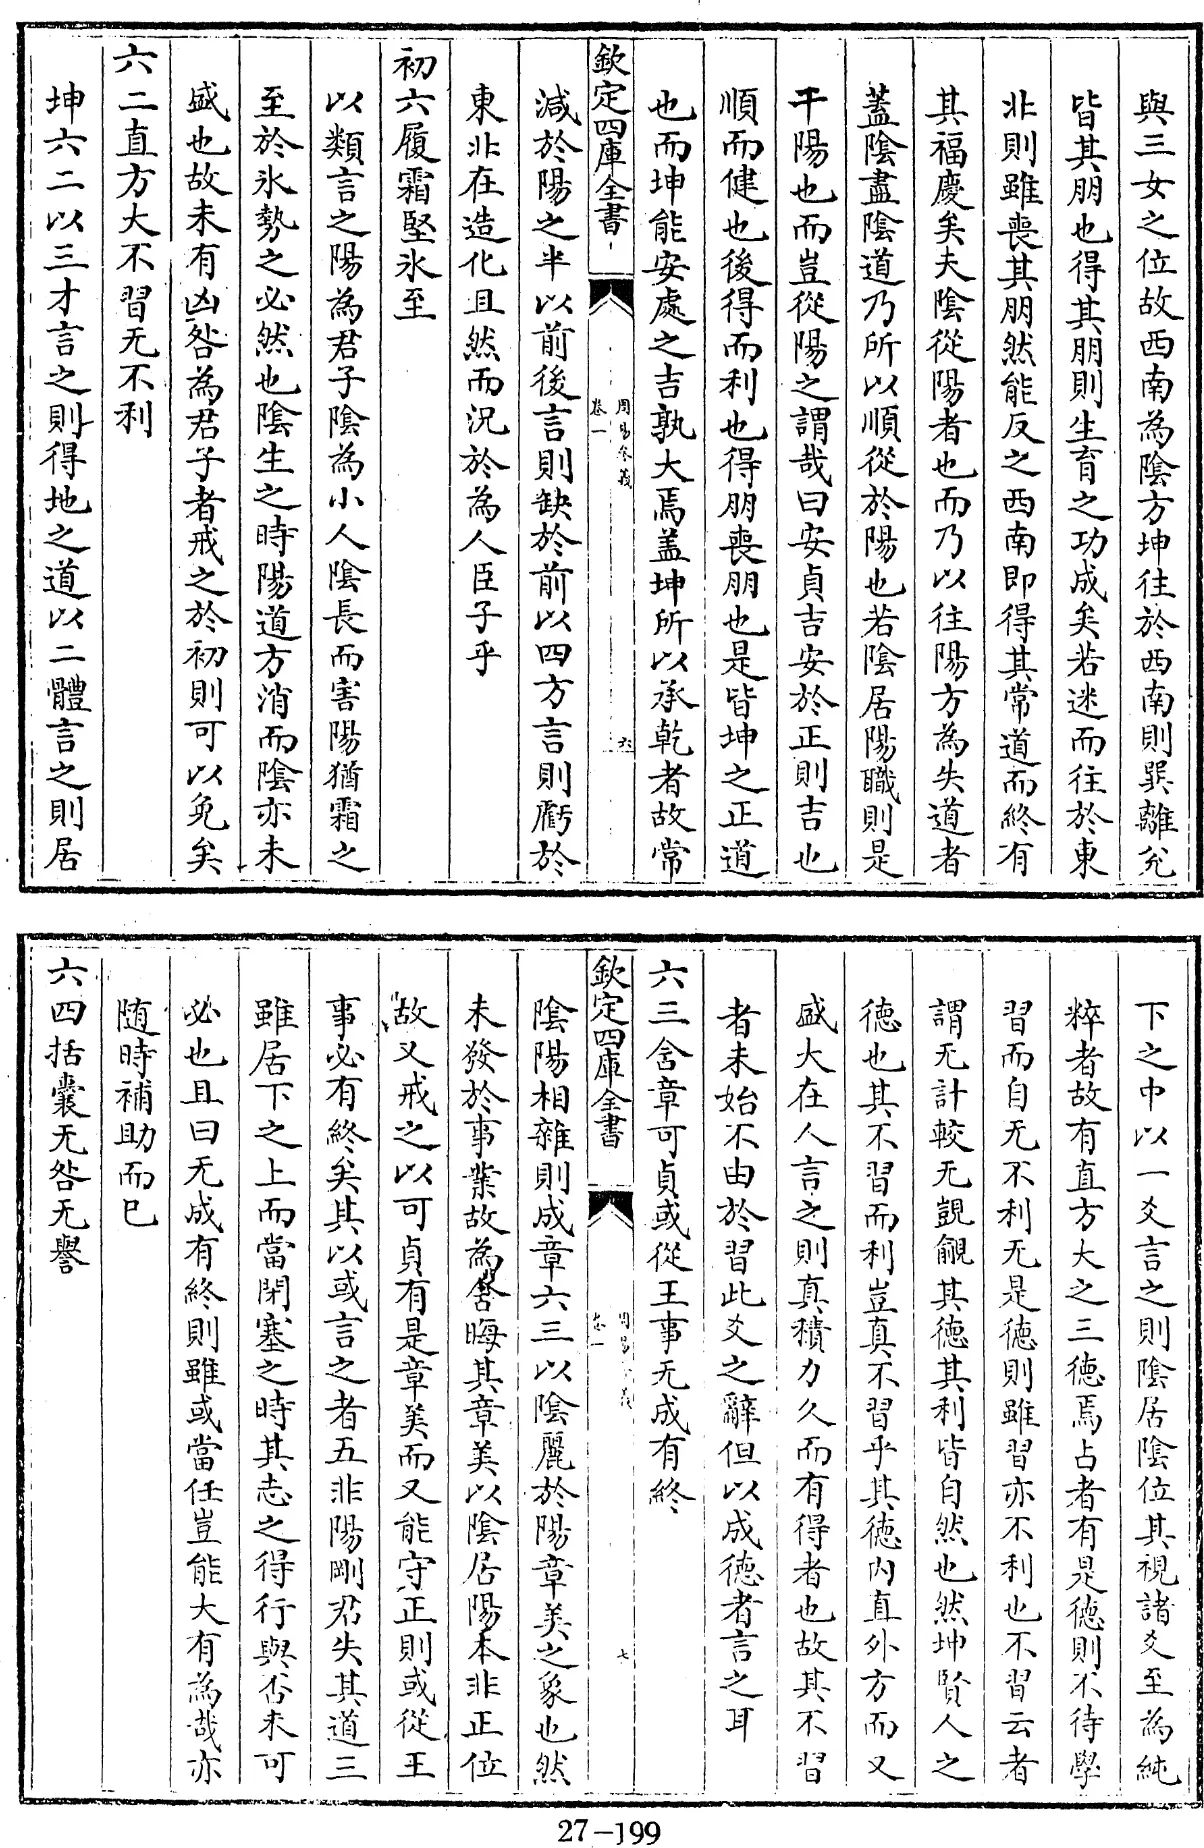 與三女之位故西南為陰方坤往於西南則巽離兊
皆其朋也得其朋則生育之功成矣若迷而往於東
北則雖喪其朋然能反之西南即得其常道而終有
其福慶矣夫陰從陽者也而乃以往陽方為失道者
蓋陰盡陰道乃所以順從於陽也若陰居陽職則是
干陽也而豈從陽之謂哉曰安貞吉安於正則吉也
順而健也後得而利也得朋喪朋也是皆坤之正道
也而坤能安處之吉孰大焉盖坤所以承乾者故常
欽定四庫全書
周易參義
卷一
六
減於陽之半以前後言則缺於前以四方言則虧於
東北在造化且然而況於為人臣子乎
初六履霜堅氷至
以類言之陽為君子陰為小人陰長而害陽猶霜之
至於氷勢之必然也陰生之時陽道方消而陰亦未
盛也故未有凶咎為君子者戒之於初則可以免矣
六二直方大不習无不利
坤六二以三才言之則得地之道以二體言之則居
下之中以一爻言之則陰居陰位其視諸爻至為純
粹者故有直方大之三德焉占者有是德則不待學
習而自无不利无是德則雖習亦不利也不習云者
謂无計較无覬覦其德其利皆自然也然坤賢人之
德也其不習而利豈真不習乎其德内直外方而又
盛大在人言之則真積力久而有得者也故其不習
者未始不由於習此爻之辭但以成德者言之耳
六三含章可貞或從王事无成有終
欽定四庫全書
卷一
七
陰陽相雜則成章六三以陰麗於陽章美之象也然
未發於事業故為含晦其章美以陰居陽本非正位
故又戒之以可貞有是章美而又能守正則或從王
事必有終矣其以或言之者五非陽剛君失其道三
雖居下之上而當閉塞之時其志之得行與否未可
必也且曰无成有終則雖或當任豈能大有為哉亦
随時補助而已
六四括囊无咎无譽
27-199